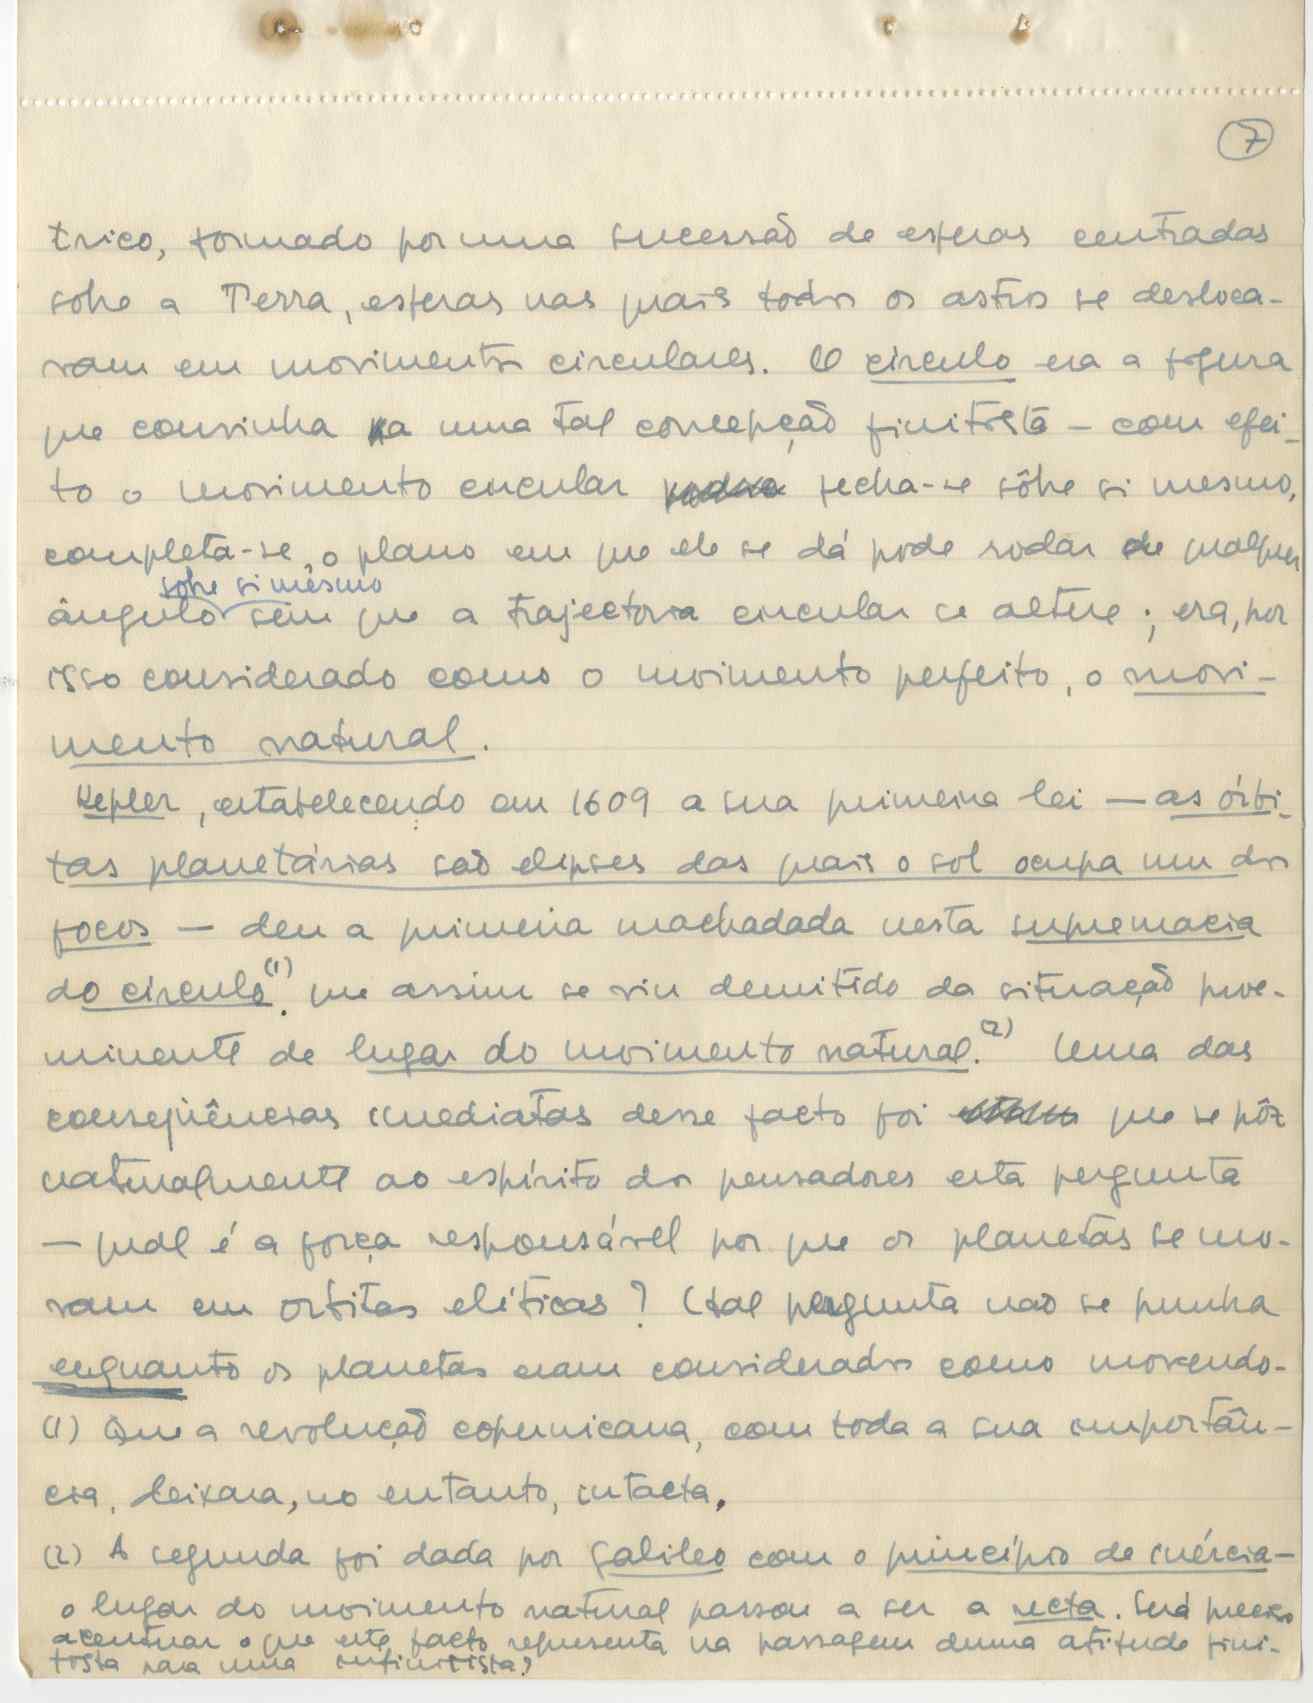 7
trico, formado por uma sucessão de esferas centradas
sobre a Terra, esferas nas quais todos os astros se desloca-
vam em movimentos circulares. O círculo era a figura
que convinha a uma tal concepção finitista – com efei-
to o movimento circular fecha-se sôbre si mesmo,
completa-se, o plano em que ele se dá pode rodar de qualquer
sobre si mesmo
ângulo sem que a trajectória circular se altere; era, por
isso considerado como o movimento perfeito, o movi-
mento natural.
Kepler, estabelecendo em 1609 a sua primeira lei — as órbi-
tas planetárias são elipses das quais o sol ocupa um dos
focos — deu a primeira machadada nesta supremacia
do círculo(1), que assim se viu demitido da situação proe-
minente de lugar do movimento natural.(2) Uma das
conseqüências imediatas desse facto foi que se pôz
naturalmente ao espírito dos pensadores esta pergunta
— qual é a força responsável por que os planetas se mo-
vam em orbitas elíticas? (tal pergunta não se punha
enquanto os planetas eram considerados como movendo-
(1) Que a revolução copernicana, com toda a sua importân-
cia, deixara, no entanto, intacta.
(2) A segunda foi dada por Galileo com o princípio de inércia —
o lugar do movimento natural passou a ser a recta. Será preciso
acentuar o que este facto representa na passagem duma atitude fini-
tista para uma infinitista?